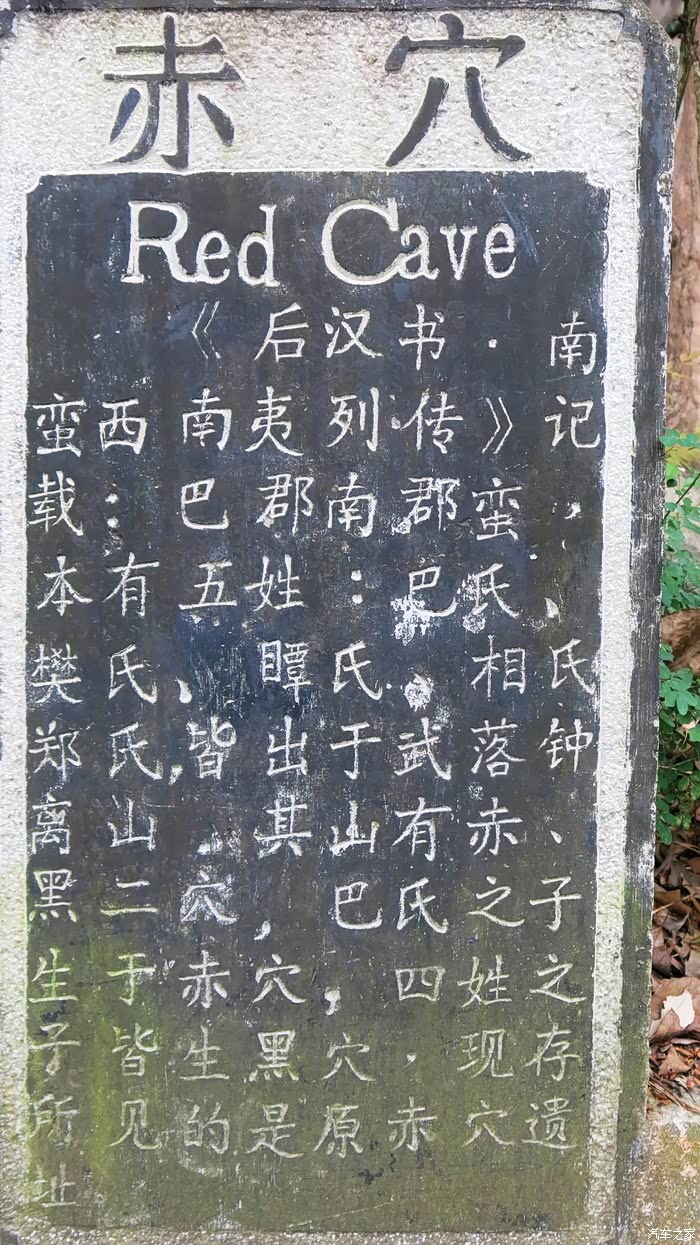 赤穴
Red Cave
《后汉书·南
蛮西南夷列传》记
载：巴郡南郡蛮，
本有五姓：巴氏、
樊氏、瞫氏、相氏
郑氏，皆出于武落钟
离山。其山有赤、
黑二穴，巴氏之子
生于赤穴，四姓之
子皆生黑穴·现存
所见的是原赤穴遗
址
汽车之家